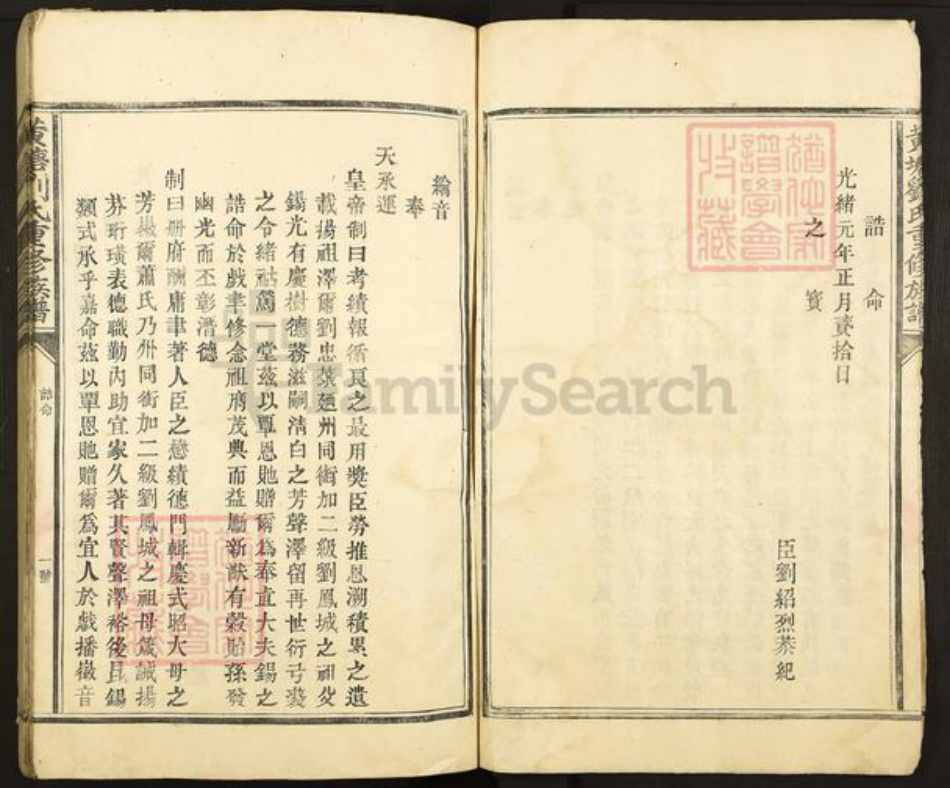 黃塘劉氏重修族譜
誥命
光緒元年正月貳拾日
之寶
臣劉紹烈恭紀
綸音
奉
天承運
皇帝制曰考績報循良之最用獎臣勞推恩溯積累之遺
載揚祖澤爾劉忠葉廼州同銜加二級劉鳳城之祖父
錫光有慶樹德務滋嗣清白之芳聲澤留再世衍弓裘
之令緒祜篤一堂茲以覃恩貤贈爾為奉直大夫錫之
誥命於戲聿修念祖膺茂典而益勵新猷有穀貽孫發
幽光而丕彰潛德
制曰冊府酬庸聿著人臣之懋績德門輯慶式昭大母之
芳徽爾蕭氏乃州同銜加二級劉鳳城之祖母箴誡揚
芬珩璜表德職勤內助宜家久著其賢聲澤裕後昆錫
類式承乎嘉命茲以覃恩貤贈爾為宜人於戲播徽音
黃塘劉氏重修族譜
誥命
一號
譜學會
收藏
FamilySearch